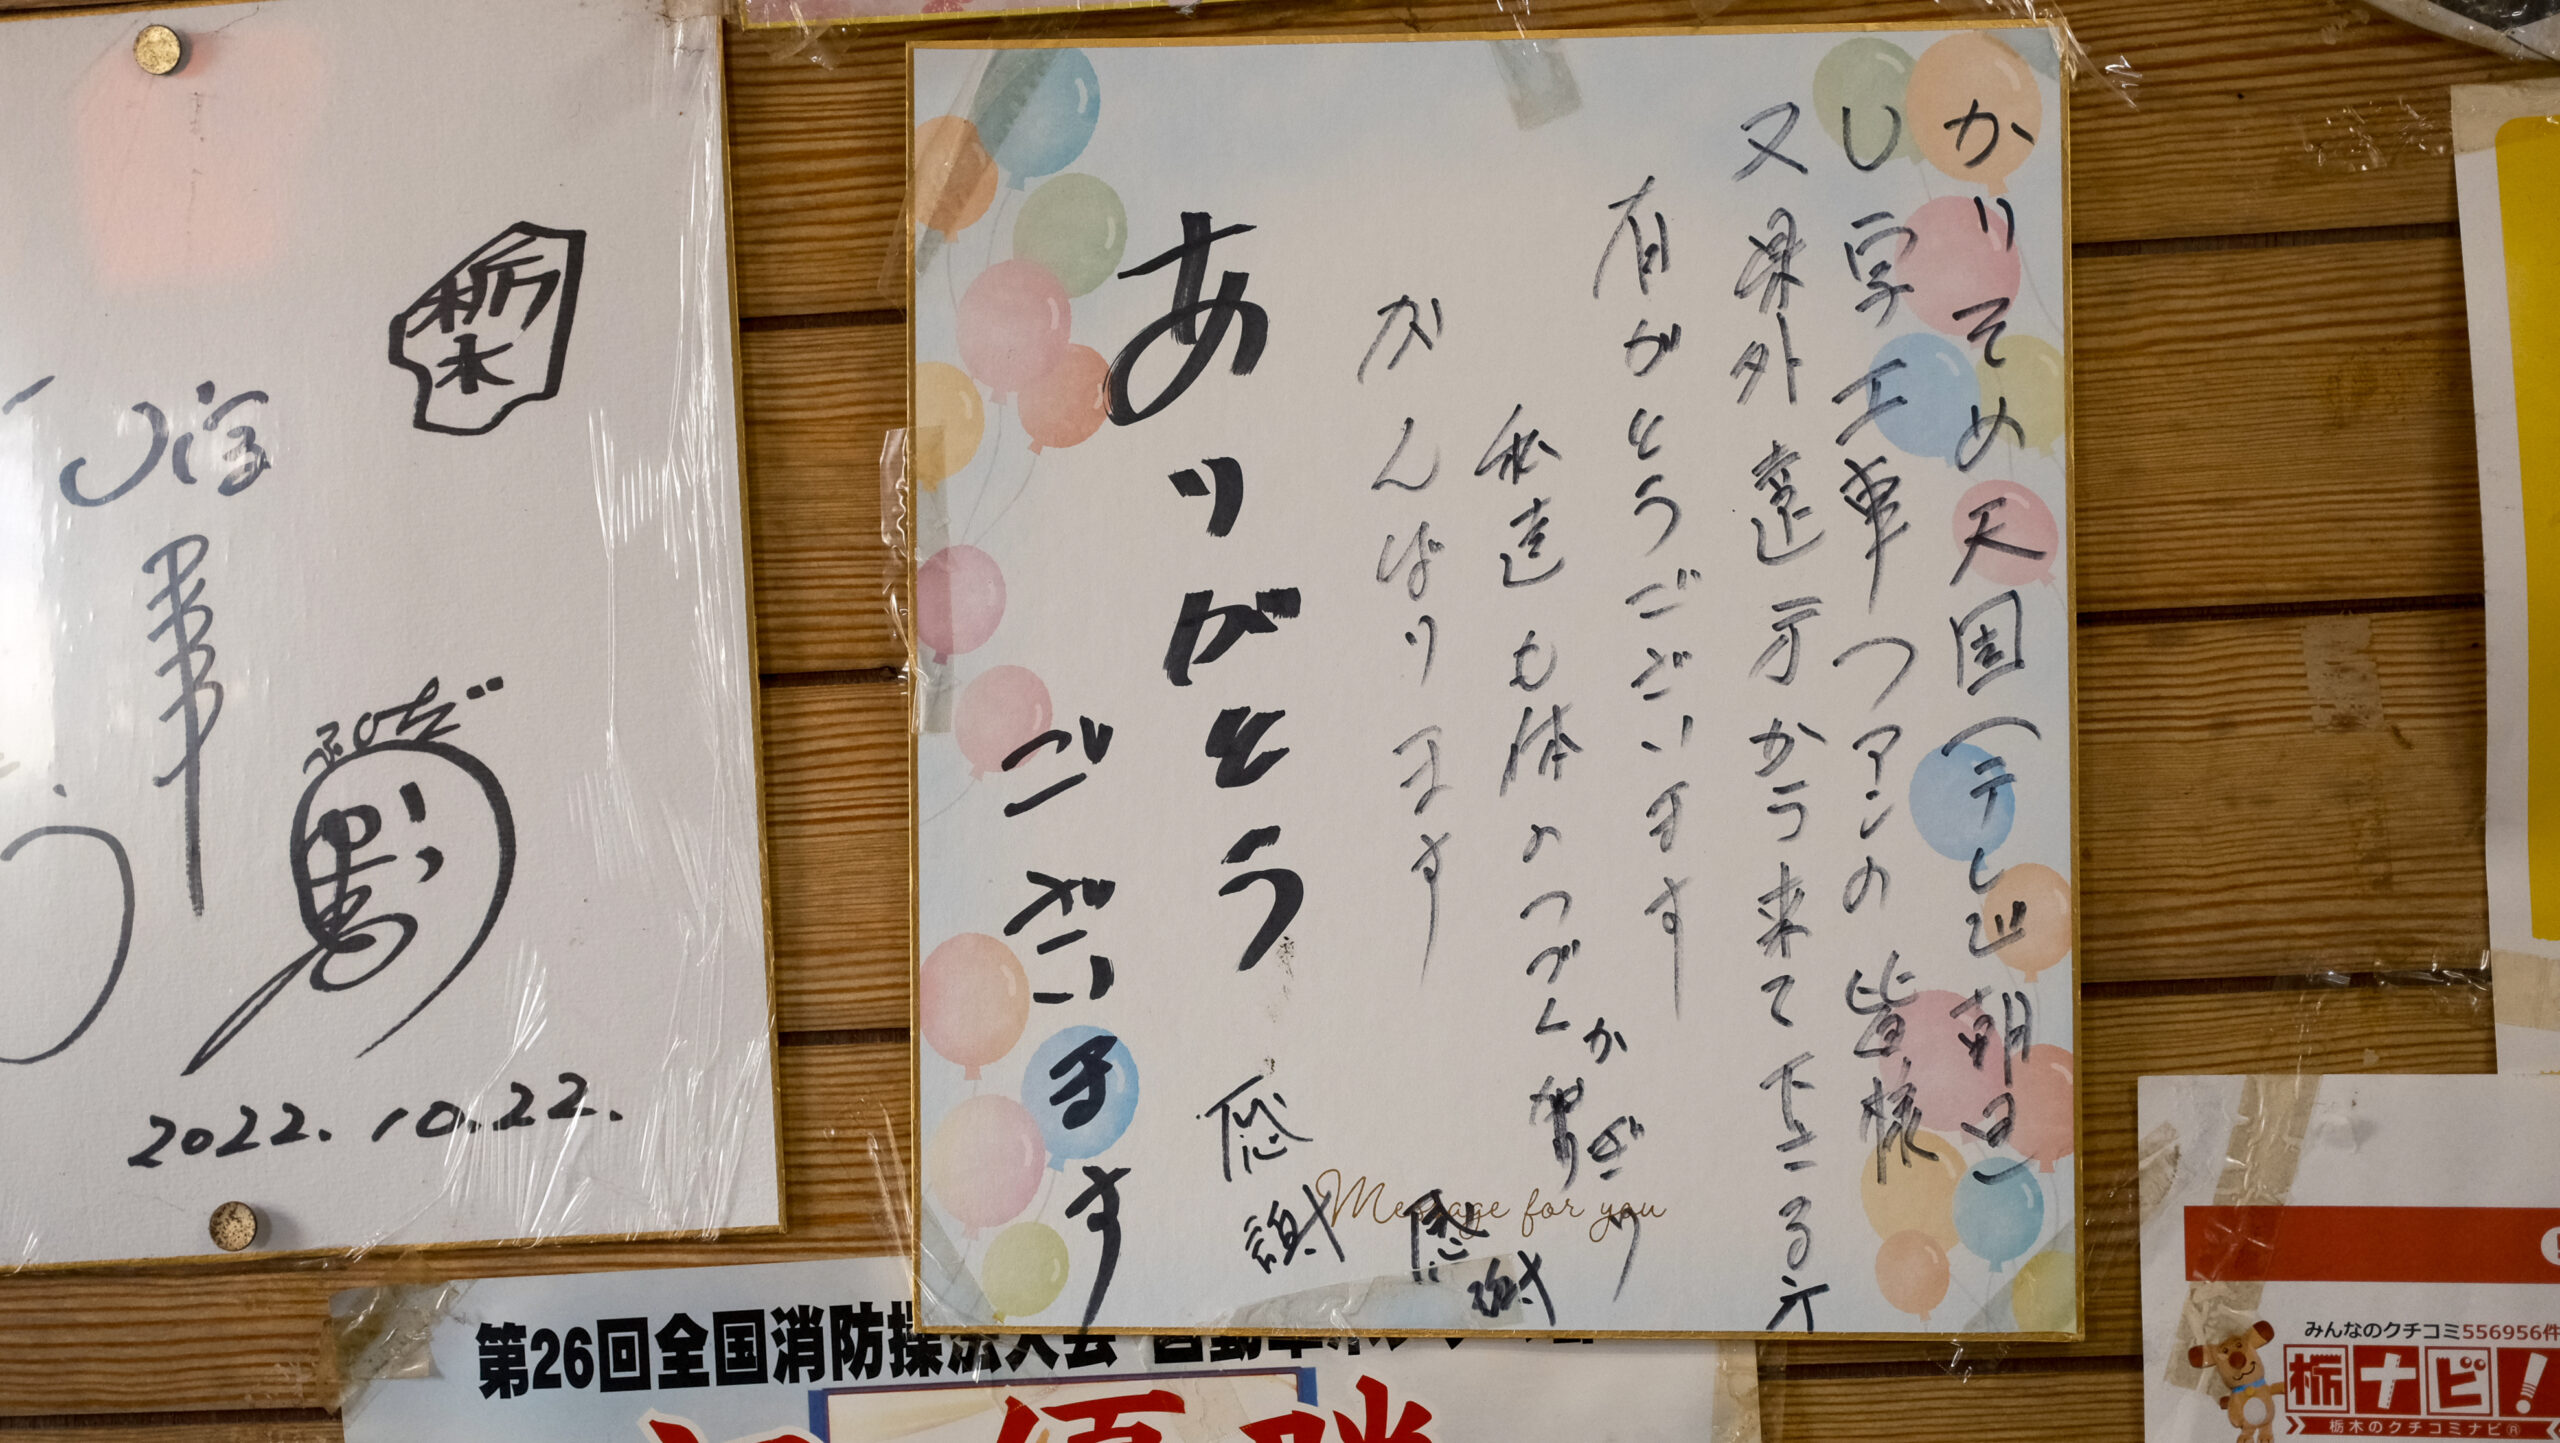 かりそめ天国(テレビ朝日)
U字工事ファンの皆様
又県外遠方から来て下さる方
有がとうございます
私達も体のつづくかぎり
がんばります
感謝
ありがとう
ございます
感謝
栃木
U字
2022.10.22.
第26回全国消防操法大会
優勝
みんなのクチコミ556956件
栃ナビ!
栃木のクチコミナビ®